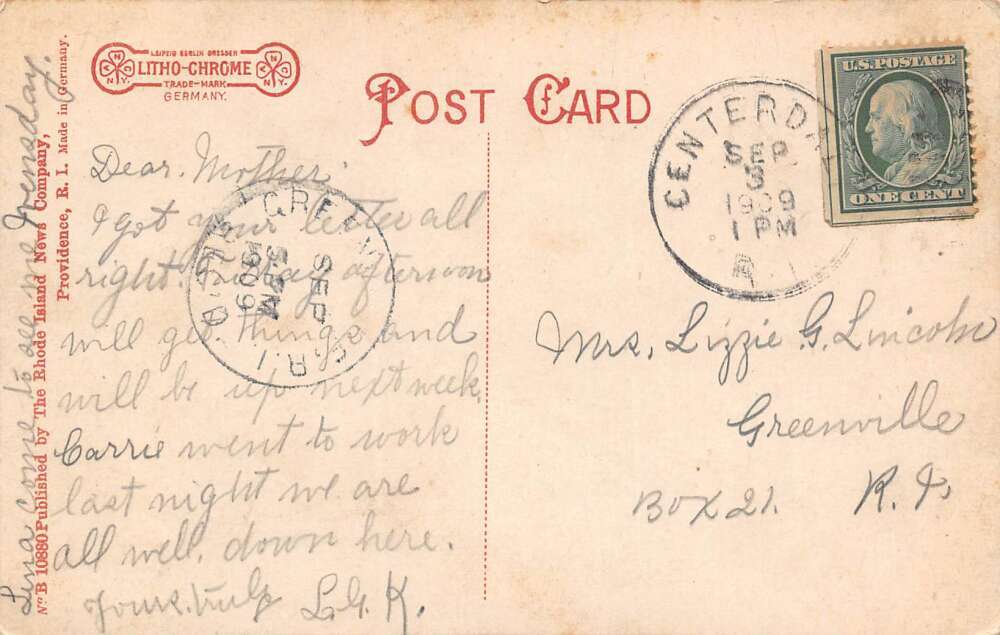 LEIPZIG BERLIN DRESDEN
LITHO-CHROME
TRADE-MARK
GERMANY.
N.Y.
N.Y.
POST CARD
CENTERDA
SEP
3
1909
1 PM
R.I.
U.S. POSTAGE
ONE CENT
GREEN
R.I.
SEP
5-PM
1909
Dear. Mother.
I got your letter all
right. Friday afternoon
will get things and
will be up next week.
Carrie went to work
last night we are
all well. down here.
Yours. truly L.G. K.
Mrs. Lizzie G. Lincoln
Greenville
Box 21. R. I.
Lena come to see me Wensday.
No. B 10880 Published by The Rhode Island News Company,
Providence, R. I. Made in Germany.